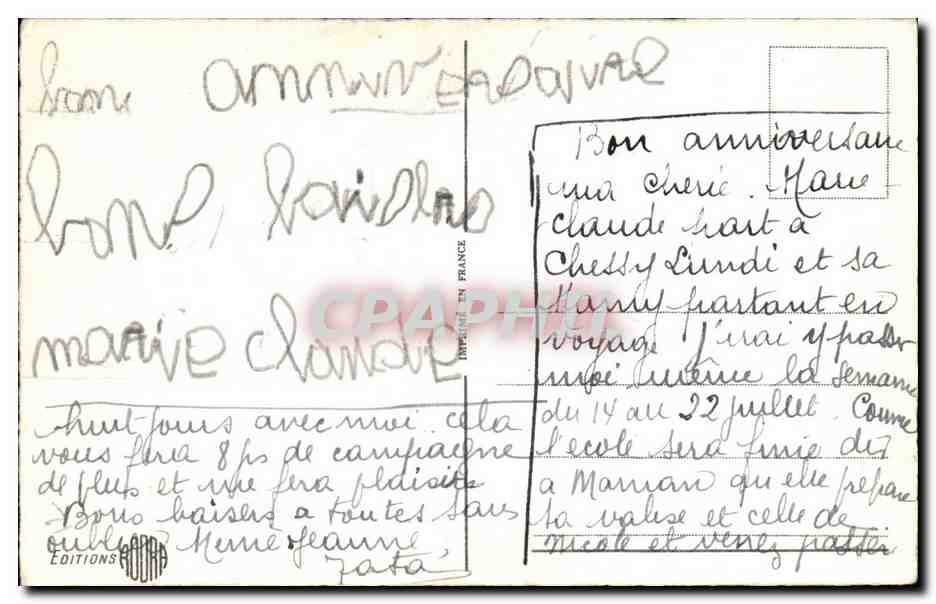 bonne anniversaire
bons baisers
marie claude
Bon anniversaire
ma chérie. Marie
claude part à
Chessy Lundi et sa
Mamy partant en
voyage J'irai y passer
moi même la semaine
du 14 au 22 juillet. Comme
l'école sera finie dis
a Maman qu'elle prépare
ta valise et celle de
Nicole et venez passer
huit jours avec moi. cela
vous fera 8 js de campagne
de plus et me fera plaisir
Bons baisers a toutes sans
oublier Mémé Jeanne
Tata
IMPRIMÉ EN FRANCE
EDITIONS
CPARAMA